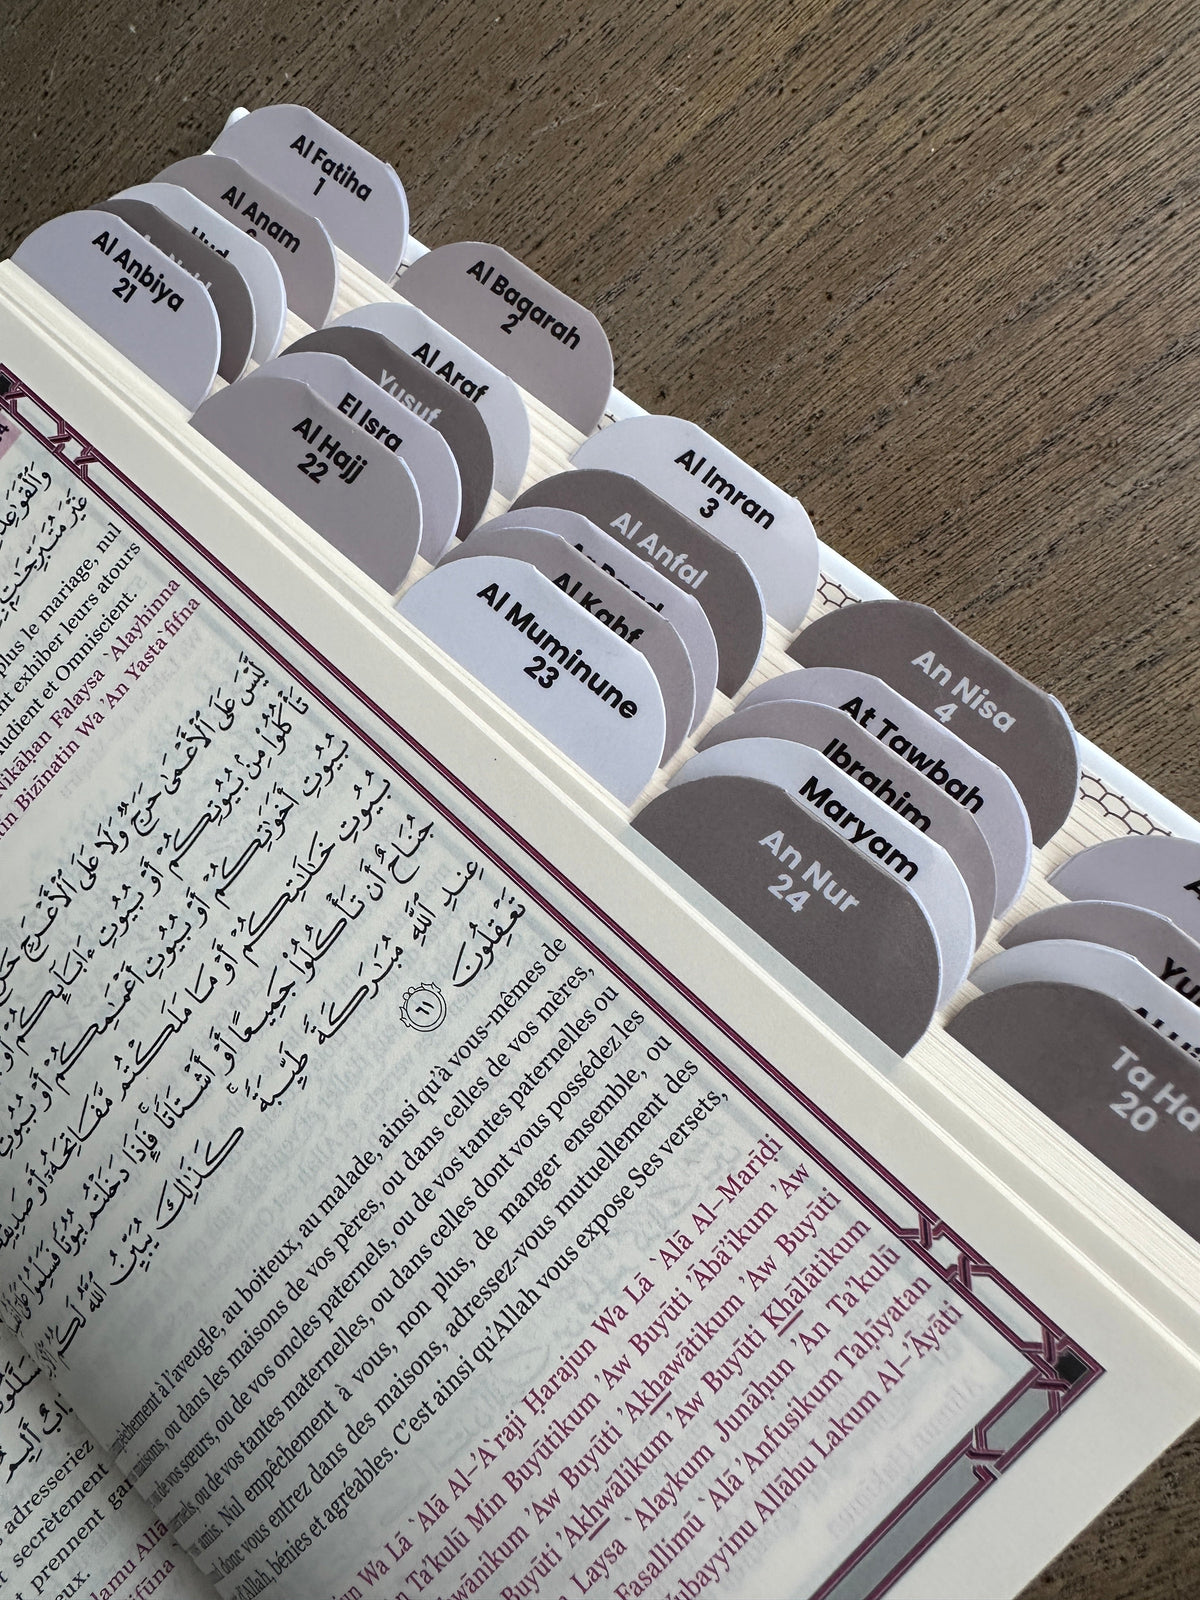 Al Fatiha
1
Al Anam
Hud
Al Anbiya
21
Al Baqarah
2
Al Araf
Yusuf
El Isra
Al Hajj
22
Al Imran
3
Al Anfal
Al Kahf
Al Muminune
23
An Nisa
4
At Tawbah
Ibrahim
Maryam
An Nur
24
Ta Ha
20
plus le mariage, nul
exhiber leurs atours
et Omniscient.
Nikāhan Falaysa `Alayhinna
Bizīnatin Wa 'An Yasta`fifna
لَّيْسَ عَلَى ٱلْأَعْمَىٰ حَرَجٌ وَلَا عَلَى ٱلْأَعْرَجِ
تَأْكُلُوا۟ مِنۢ بُيُوتِكُمْ أَوْ بُيُوتِ ءَابَآئِكُمْ
بُيُوتِ أَخَوَٰتِكُمْ أَوْ بُيُوتِ أَعْمَـٰمِكُمْ أَوْ بُيُوتِ
بُيُوتِ خَـٰلَـٰتِكُمْ أَوْ مَا مَلَكْتُم مَّفَاتِحَهُۥٓ أَوْ
جُنَاحٌ أَن تَأْكُلُوا۟ جَمِيعًا أَوْ أَشْتَاتًا ۚ فَإِذَا دَخَلْتُم بُيُوتًا فَسَلِّمُوا۟
عِندِ ٱللَّهِ مُبَـٰرَكَةً طَيِّبَةً ۚ كَذَٰلِكَ يُبَيِّنُ ٱللَّهُ لَكُمُ
تَعْقِلُونَ ٦١
à l'aveugle, au boiteux, au malade, ainsi qu'à vous-mêmes de
ou dans les maisons de vos pères, ou dans celles de vos mères,
de vos sœurs, ou de vos oncles paternels, ou de vos tantes paternelles ou
ou de vos tantes maternelles, ou dans celles dont vous possédez les
amis. Nul empêchement à vous, non plus, de manger ensemble, ou
donc vous entrez dans des maisons, adressez-vous mutuellement des
d'Allah, bénies et agréables. C'est ainsi qu'Allah vous expose Ses versets,
Wa Lā `Alā Al-'A`raji Ḥarajun Wa Lā `Alā Al-Marīḍi
Ta'kulū Min Buyūtikum 'Aw Buyūti 'Ābā'ikum 'Aw
'Aw Buyūti 'Akhawātikum 'Aw Buyūti
Buyūti 'Akhwālikum 'Aw Buyūti Khālātikum
Laysa `Alaykum Junāḥun 'An Ta'kulū
Fasallimū `Alá 'Anfusikum Taḥīyatan
Yubayyinu Allāhu Lakum Al-'Āyāti
adresseriez
secrètement
prennent